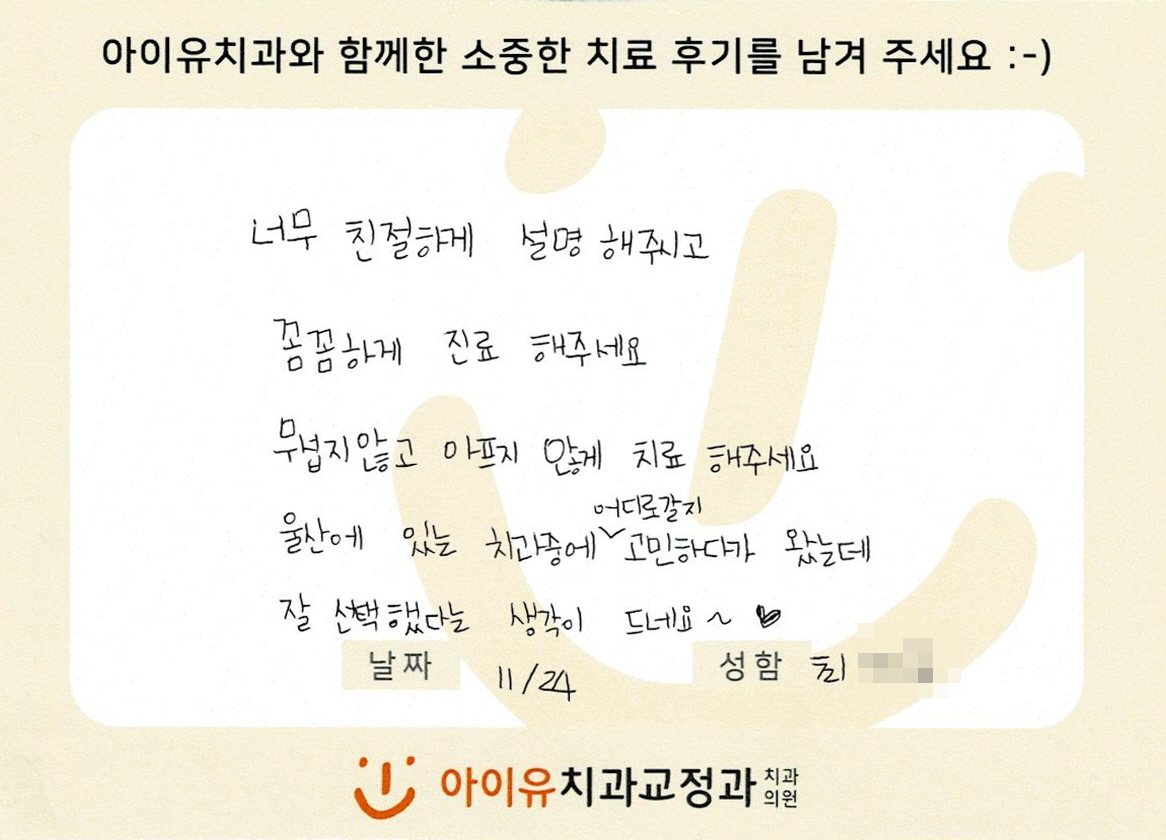 아이유치과와 함께한 소중한 치료 후기를 남겨 주세요 :-)
너무 친절하게 설명 해주시고
꼼꼼하게 진료 해주세요
무섭지않고 아프지 않게 치료 해주세요
울산에 있는 치과중에 어디로갈지 고민하다가 왔는데
잘 선택했다는 생각이 드네요~ ♥
날짜 11/24 성함 최
아이유치과교정과 치과의원